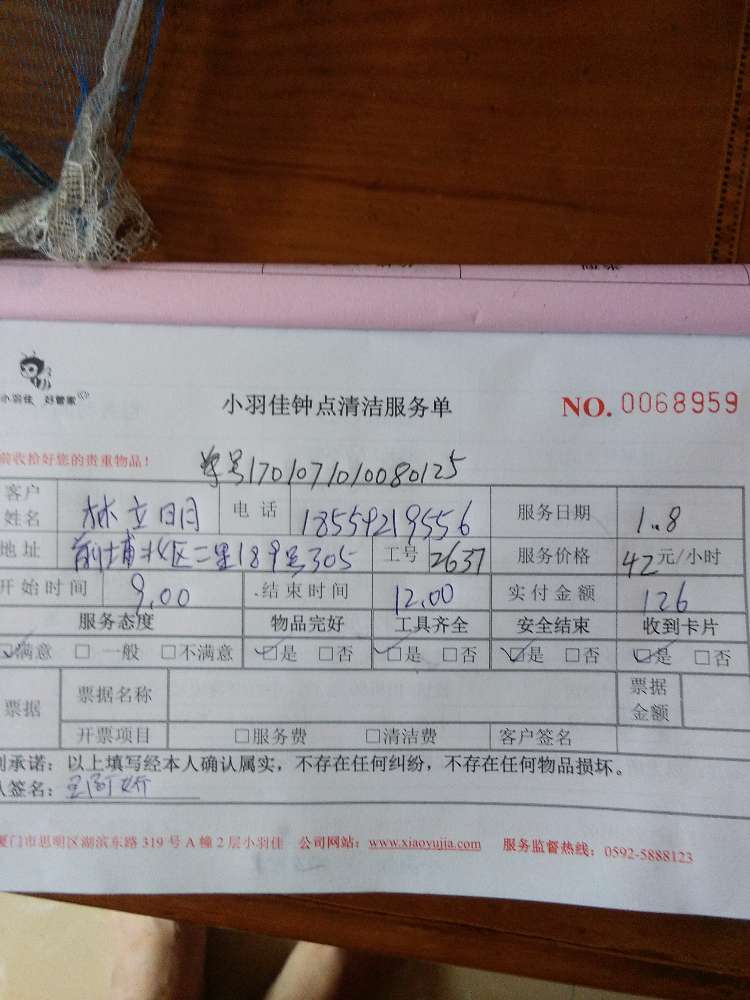 小羽佳 好管家
小羽佳钟点清洁服务单
NO. 0068959
前收拾好您的贵重物品！
单号170107010080125
客户姓名 林立明 电话 18559219556 服务日期 1.8
地址 前埔北区二里189号305 工号 2637 服务价格 42元/小时
开始时间 9.00 结束时间 12.00 实付金额 126
服务态度 物品完好 工具齐全 安全结束 收到卡片
☑满意 □一般 □不满意 ☑是 □否 ☑是 □否 ☑是 □否 ☑是 □否
票据 票据名称 票据金额
开票项目 □服务费 □清洁费 客户签名
承诺：以上填写经本人确认属实，不存在任何纠纷，不存在任何物品损坏。
签名：
厦门市思明区湖滨东路319号A幢2层小羽佳 公司网站：www.xiaoyujia.com 服务监督热线：0592-5888123